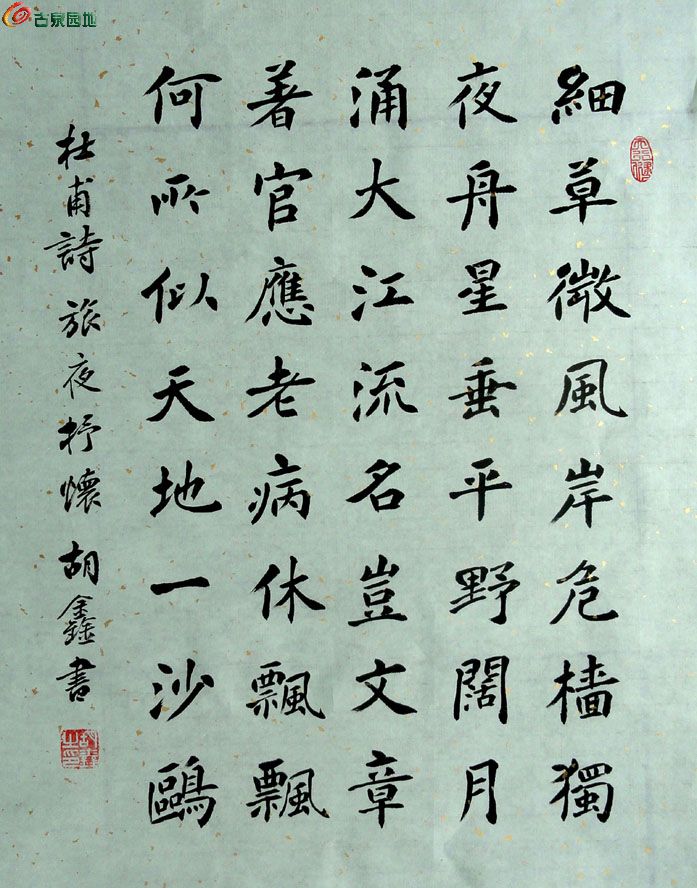 古泉园地
細草微風岸危檣獨
夜舟星垂平野闊月
涌大江流名豈文章
著官應老病休飄飄
何所似天地一沙鷗
杜甫詩旅夜抒懷胡鑫書